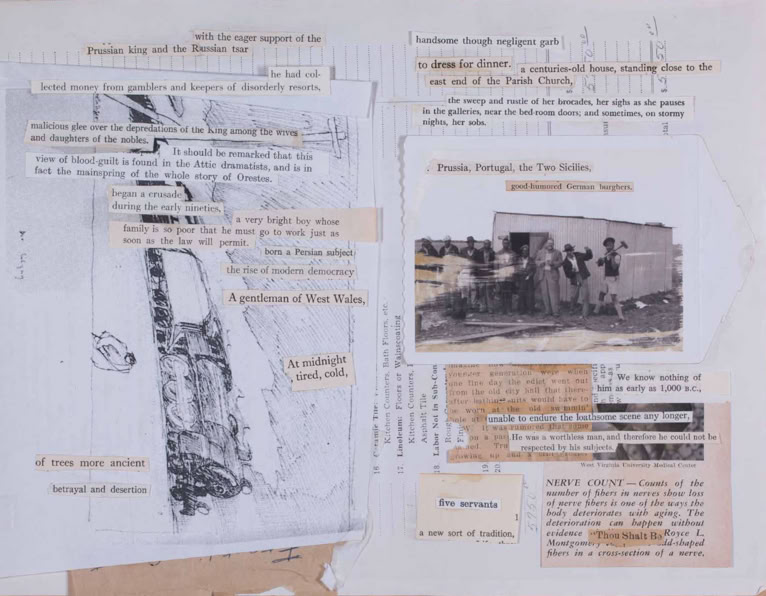 with the eager support of the
Prussian king and the Russian tsar
he had col-
lected money from gamblers and keepers of disorderly resorts,
malicious glee over the depredations of the King among the wives
and daughters of the nobles.
It should be remarked that this
view of blood-guilt is found in the Attic dramatists, and is in
fact the mainspring of the whole story of Orestes.
began a crusade
during the early nineties,
a very bright boy whose
family is so poor that he must go to work just as
soon as the law will permit.
born a Persian subject
the rise of modern democracy
A gentleman of West Wales,
At midnight
tired, cold,
of trees more ancient
betrayal and desertion
handsome though negligent garb
to dress for dinner.
a centuries-old house, standing close to the
east end of the Parish Church,
the sweep and rustle of her brocades, her sighs as she pauses
in the galleries, near the bed-room doors; and sometimes, on stormy
nights, her sobs.
Prussia, Portugal, the Two Sicilies,
good-humored German burghers.
Kitchen Counters, Bath Floors, etc.
17. Linoleum: Floors or Wainscoating
Kitchen Counters,
Asphalt Tile
18. Labor Not in Sub-Con
19.
20.
younger generation were when
one fine day the edict went out
from the old city hall that there-
after bathing suits would have to
be worn at the old swimmin'
It was rumored that
We know nothing of
him as early as 1,000 B.C.,
unable to endure the loathsome scene any longer,
He was a worthless man, and therefore he could not be
respected by his subjects.
West Virginia University Medical Center
NERVE COUNT — Counts of the
number of fibers in nerves show loss
of nerve fibers is one of the ways the
body deteriorates with aging. The
deterioration can happen without
evidence "Thou Shalt B Royce L.
Montgomery dd-shaped
fibers in a cross-section of a nerve.
five servants
a new sort of tradition,